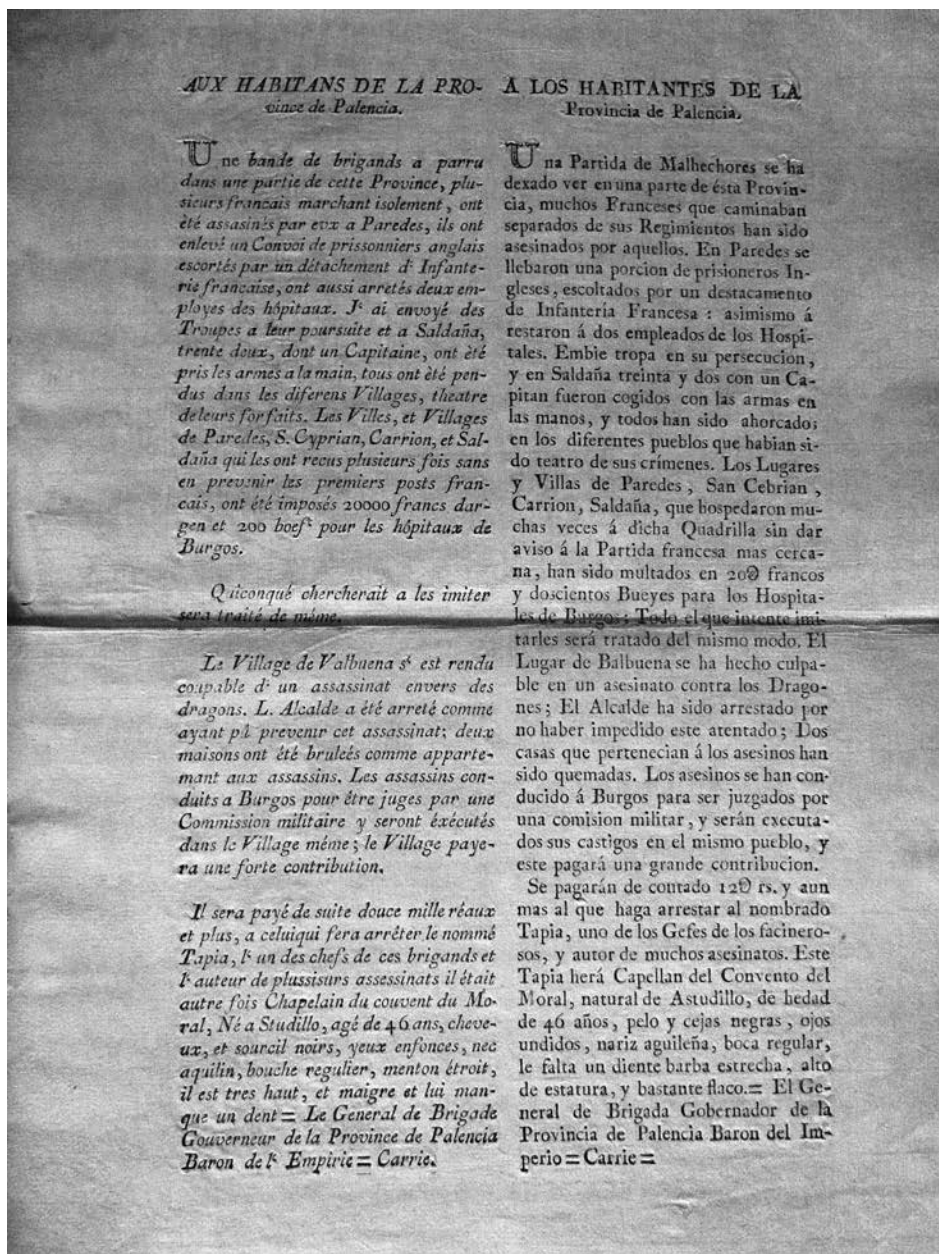 AUX HABITANS DE LA PRO-
vince de Palencia.
Une bande de brigands a parru
dans une partie de cette Province, plu-
sieurs francais marchant isolement, ont
été assasinés par evx a Paredes, ils ont
enlevé un Convoi de prissonniers anglais
escortés par un détachement dᵉ Infante-
rie francaise, ont aussi arretés deux em-
ployes des hópitaux. Jᵉ ai envoyé des
Troupes a leur poursuite et a Saldaña,
trente deux, dont un Capitaine, ont été
pris les armes a la main, tous ont èté pen-
dus dans les diferens Villages, theatre
deleurs forfaits. Les Villes, et Villages
de Paredes, S. Cyprian, Carrion, et Sal-
daña qui les ont recus plusieurs fois sans
en prevenir les premiers posts fran-
cais, ont été imposés 20000 francs dar-
gen et 200 boefˢ pour les hópitaux de
Burgos.
Quiconqué chercherait a les imiter
sera traité de méme.
Le Village de Valbuena sᵉ est rendu
coupable dᵉ un assassinat envers des
dragons. L. Alcalde a été arreté comme
ayant pû prevenir cet assassinat; deux
maisons ont été bruleés comme apparte-
mant aux assassins. Les assassins con-
duits a Burgos pour étre juges par une
Commission militaire y seront éxécutés
dans le Village méme; le Village paye-
ra une forte contribution.
Il sera payé de suite douce mille réaux
et plus, a celuiqui fera arréter le nommé
Tapia, lᵉ un des chefs de ces brigands et
lᵉ auteur de plussisurs assessinats il était
autre fois Chapelain du couvent du Mo-
ral, Né a Studillo, agé de 46 ans, cheve-
ux, et sourcil noirs, yeux enfonces, nec
aquilin, bouche regulier, menton étroit,
il est tres haut, et maigre et lui man-
que un dent = Le General de Brigade
Gouverneur de la Province de Palencia
Baron de lᵉ Empirie = Carrie.
A LOS HABITANTES DE LA
Provincia de Palencia.
Una Partida de Malhechores se ha
dexado ver en una parte de ésta Provin-
cia, muchos Franceses que caminaban
separados de sus Regimientos han sido
asesinados por aquellos. En Paredes se
llebaron una porcion de prisioneros In-
gleses, escoltados por un destacamento
de Infanteria Francesa : asimismo á
restaron á dos empleados de los Hospi-
tales. Embie tropa en su persecucion,
y en Saldaña treinta y dos con un Ca-
pitan fueron cogidos con las armas en
las manos, y todos han sido ahorcados
en los diferentes pueblos que habian si-
do teatro de sus crímenes. Los Lugares
y Villas de Paredes, San Cebrian,
Carrion, Saldaña, que hospedaron mu-
chas veces á dicha Quadrilla sin dar
aviso á la Partida francesa mas cerca-
na, han sido multados en 20Ꙩ francos
y doscientos Bueyes para los Hospita-
les de Burgos: Todo el que intente imi-
tarles será tratado del mismo modo. El
Lugar de Balbuena se ha hecho culpa-
ble en un asesinato contra los Drago-
nes; El Alcalde ha sido arrestado por
no haber impedido este atentado; Dos
casas que pertenecian á los asesinos han
sido quemadas. Los asesinos se han con-
ducido á Burgos para ser juzgados por
una comision militar, y serán executa-
dos sus castigos en el mismo pueblo, y
este pagará una grande contribucion.
Se pagarán de contado 12Ꙩ rs. y aun
mas al que haga arrestar al nombrado
Tapia, uno de los Gefes de los facinero-
sos, y autor de muchos asesinatos. Este
Tapia herá Capellan del Convento del
Moral, natural de Astudillo, de hedad
de 46 años, pelo y cejas negras, ojos
undidos, nariz aguileña, boca regular,
le falta un diente barba estrecha, alto
de estatura, y bastante flaco.= El Ge-
neral de Brigada Gobernador de la
Provincia de Palencia Baron del Im-
perio = Carrie =